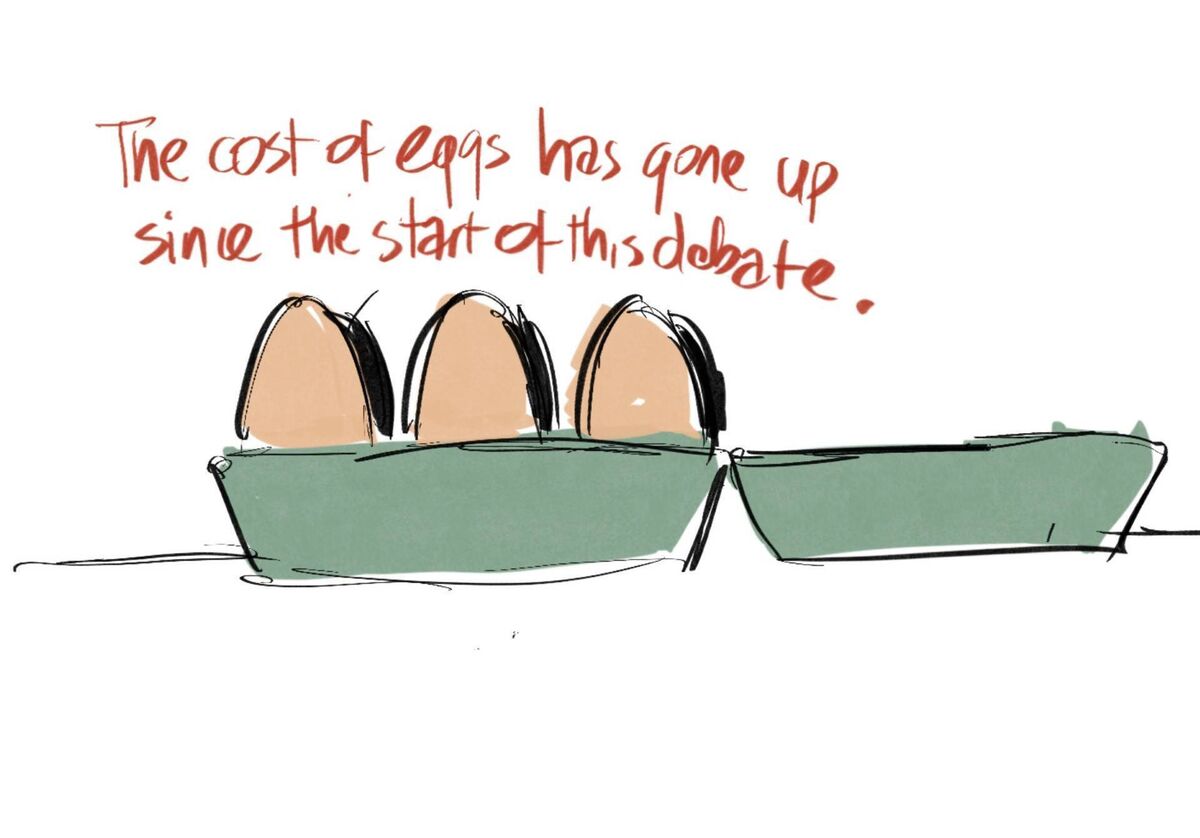 The cost of eggs has gone up
since the start of this debate.